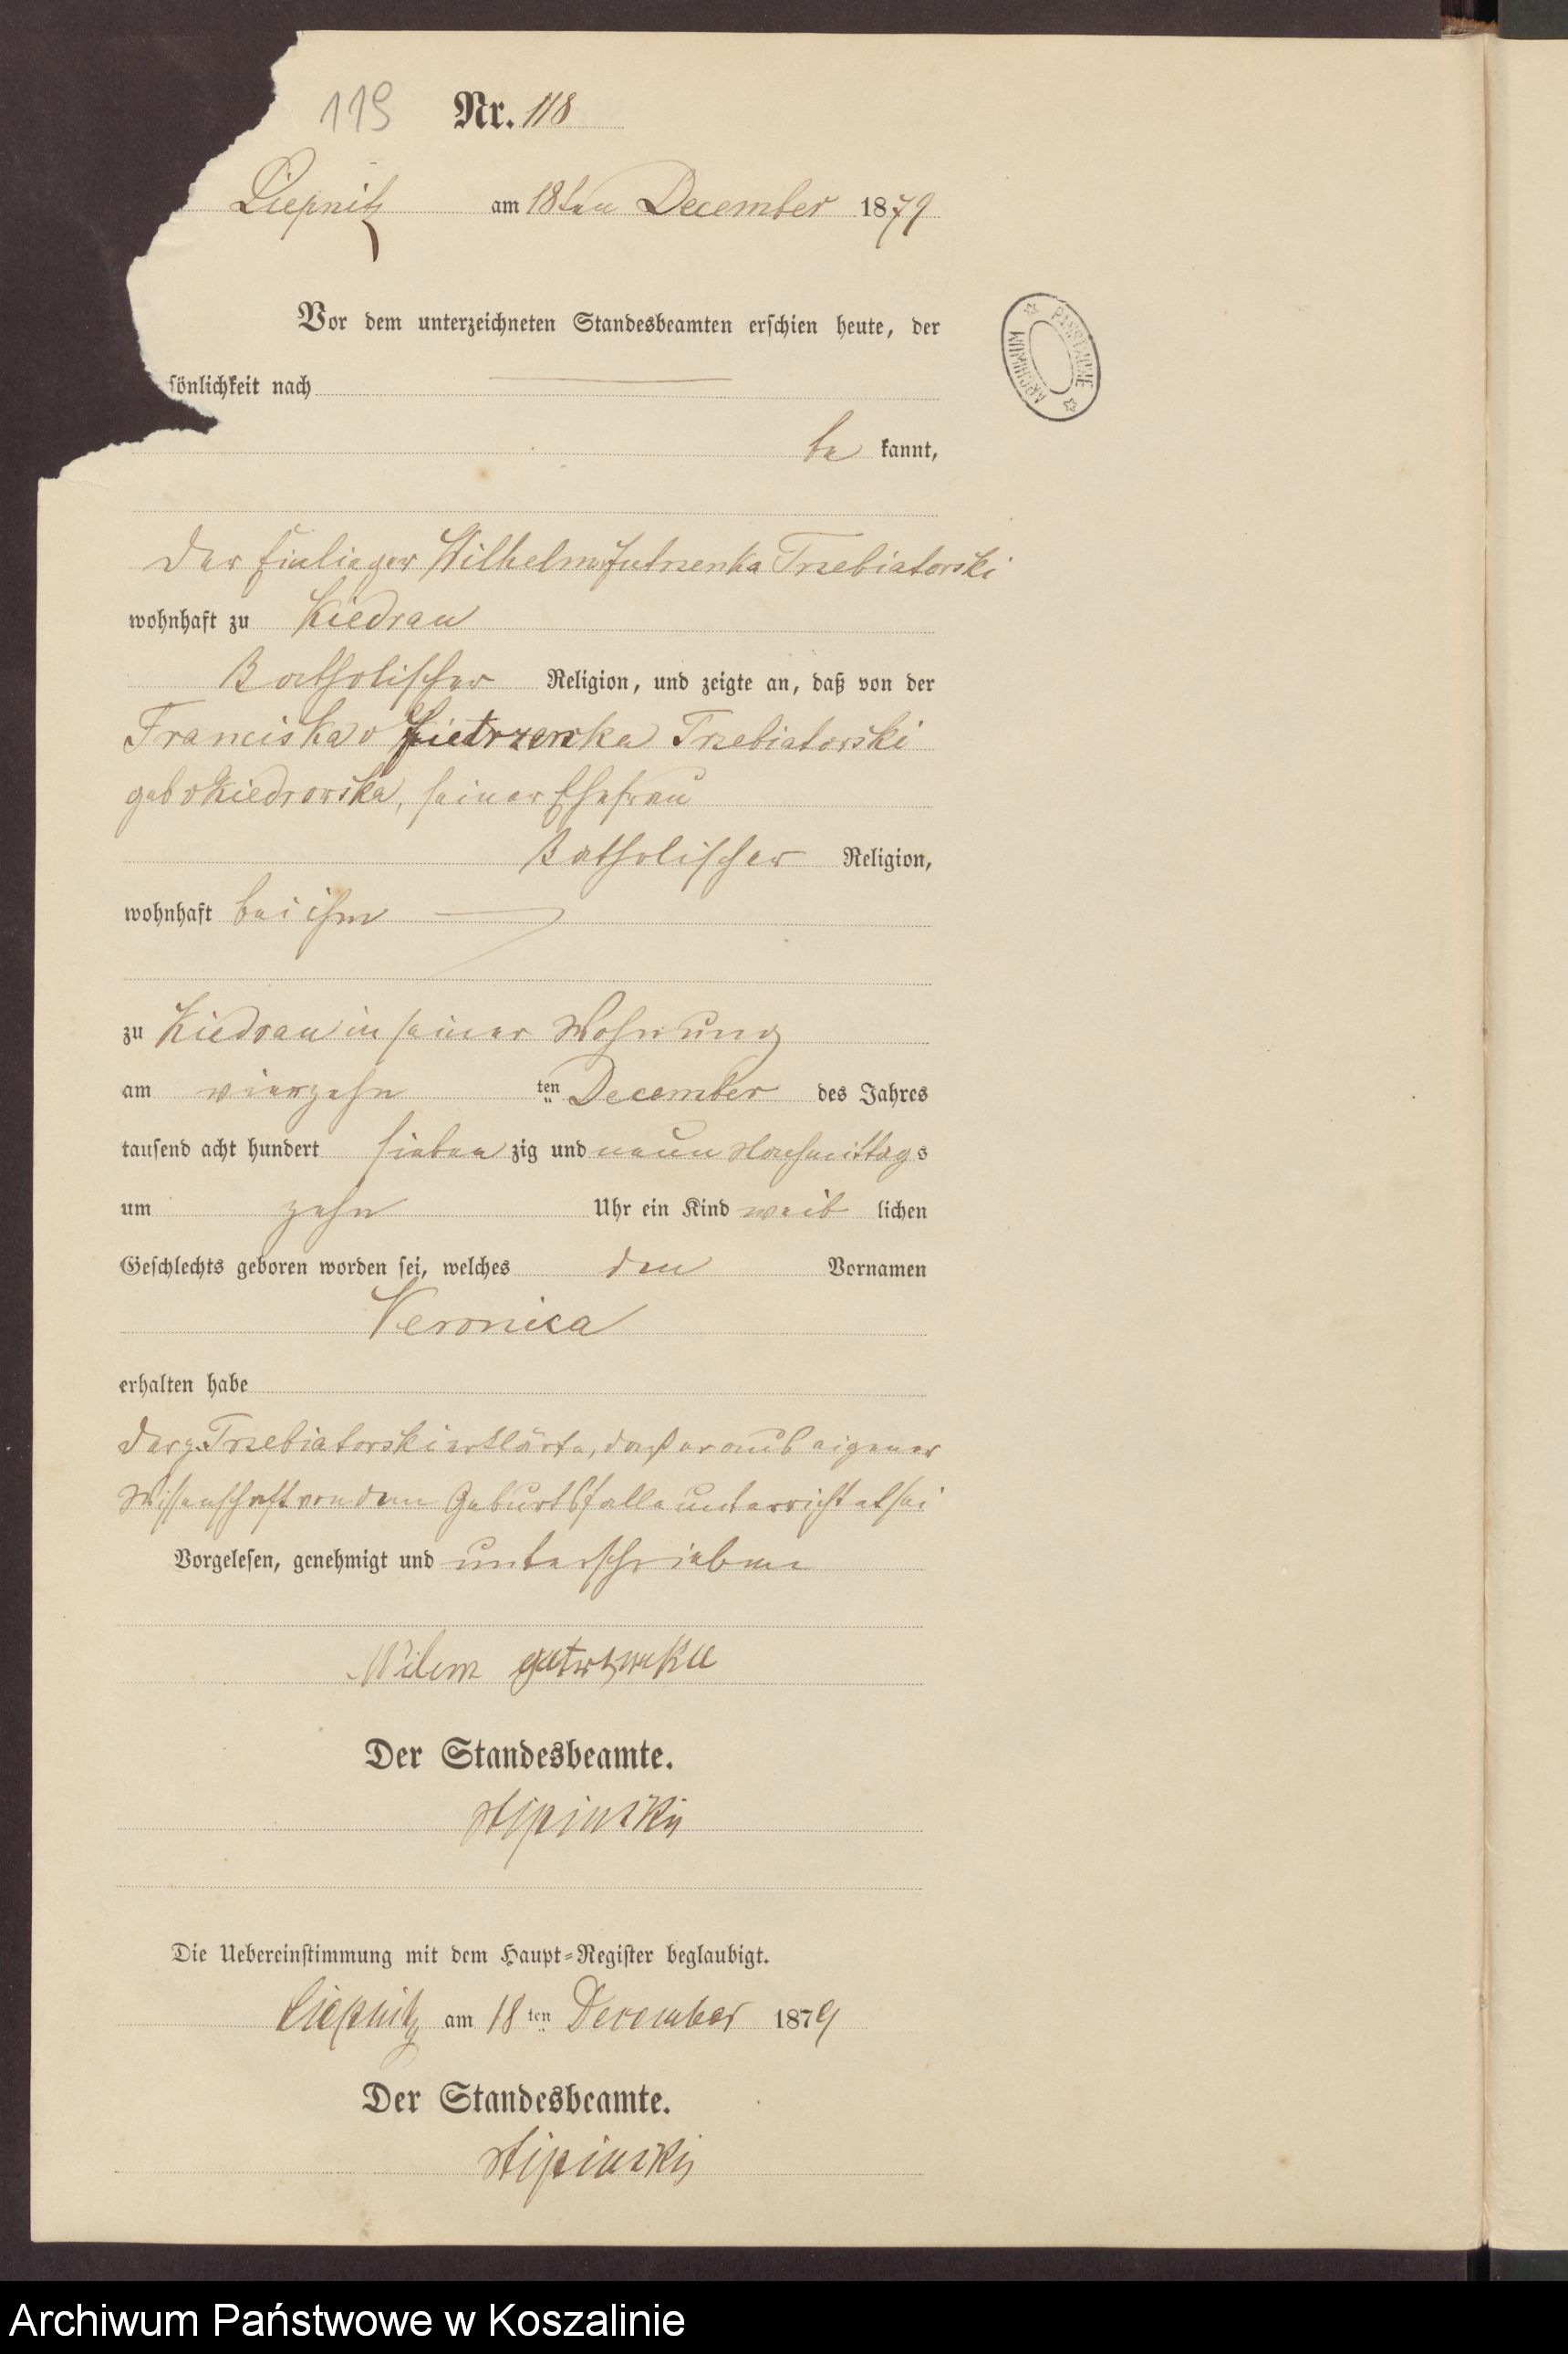 119 Nr. 118
Liepnitz am 18ten December 1879
Vor dem unterzeichneten Standesbeamten erschien heute, der
sönlichkeit nach
be kannt,
Der Einlieger Wilhelm Jutrzenka Trzebiatowski
wohnhaft zu Kiedrau
Katholischer Religion, und zeigte an, daß von der
Franciska v Trzebiatowski
geb v Kiedrowska, seiner Ehefrau
Katholischer Religion,
wohnhaft bei ihm
zu Kiedrau in seiner Wohnung
am vierzehn ten December des Jahres
tausend acht hundert sieben zig und neun Nachmittags
um zehn Uhr ein Kind weib lichen
Geschlechts geboren worden sei, welches den Vornamen
Veronica
erhalten habe
Der p. Trzebiatowski erklärte, daß er aus eigener
Wissenschaft von dem Geburtsfalle unterrichtet sei
Vorgelesen, genehmigt und unterschrieben
Wilem
Der Standesbeamte.
Die Uebereinstimmung mit dem Haupt-Register beglaubigt.
Liepnitz am 18 ten December 1879
Der Standesbeamte.
ARCHIWUM PAŃSTWOWE
Archiwum Państwowe w Koszalinie